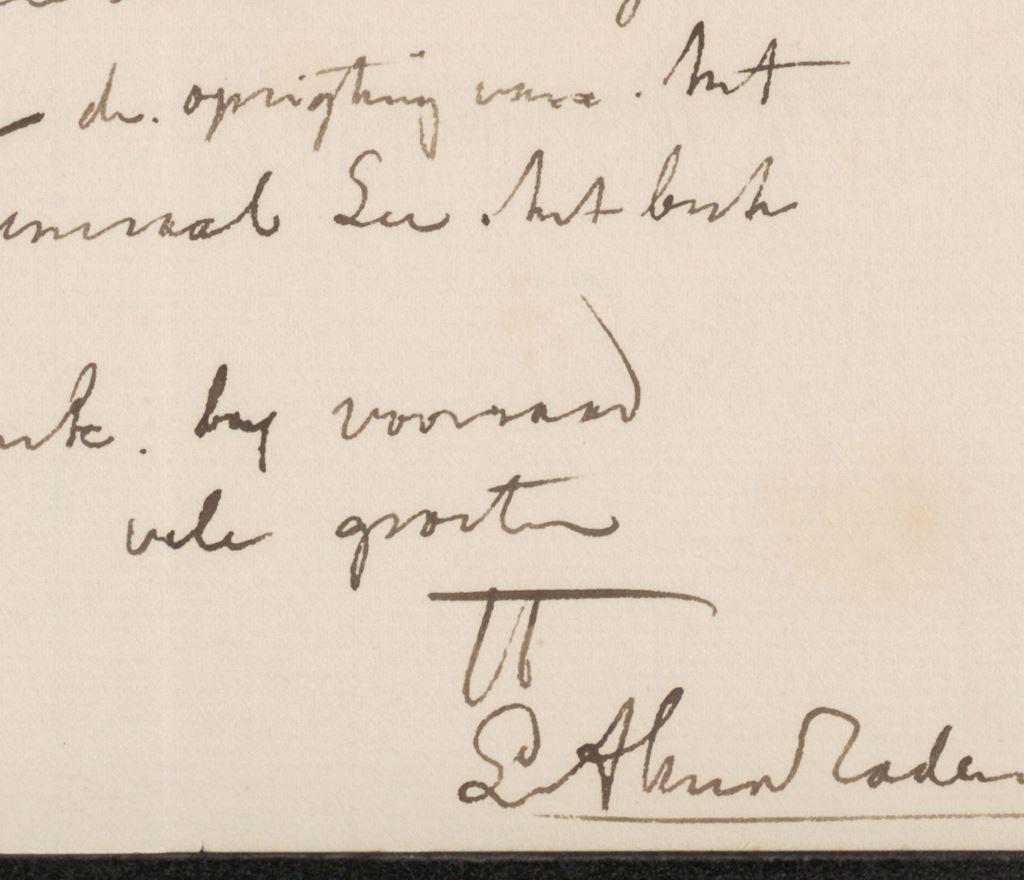 de oprigting van het
Sen. het beste
by voorraad
vele groeten
TT
L Alma Tadem